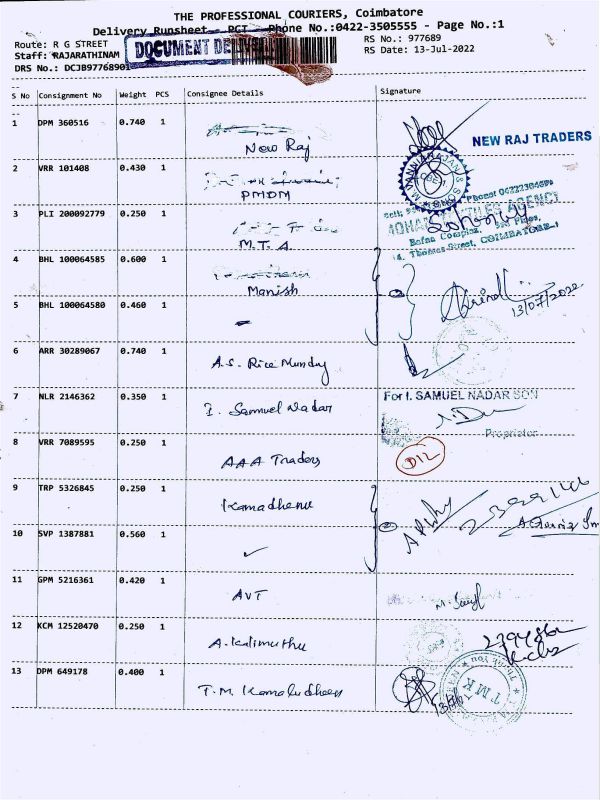 THE PROFESSIONAL COURIERS, Coimbatore
Delivery Runsheet PCT Phone No.:0422-3505555 - Page No.:1
Route: R G STREET
RS No.: 977689
Staff: RAJARATHINAM
RS Date: 13-Jul-2022
DOCUMENT
DRS No.: DCJB97768901
S No Consignment No Weight PCS Consignee Details Signature
1 DPM 360516 0.740 1
New Raj
NEW RAJ TRADERS
2 VRR 101408 0.430 1
PMDM
3 PLI 200092779 0.250 1
M.T.A.
TILES AGENCY
Complex,
14, Thomas Street, COIMBATORE-1
4 BHL 100064585 0.600 1
Manish
13/07/2022
5 BHL 100064580 0.460 1
6 ARR 30289067 0.740 1
A.S. Rice Mundy
7 NLR 2146362 0.350 1
For I. SAMUEL NADAR SON
I. Samuel Nadar
Proprietor
8 VRR 7089595 0.250 1
AAA Traders
D12
9 TRP 5326845 0.250 1
Kamadhenu
10 SVP 1387881 0.560 1
11 GPM 5216361 0.420 1
AVT
12 KCM 12520470 0.250 1
A. Kalimuthu
13 DPM 649178 0.400 1
T.M. Kamaludheen
Thank You
T M K